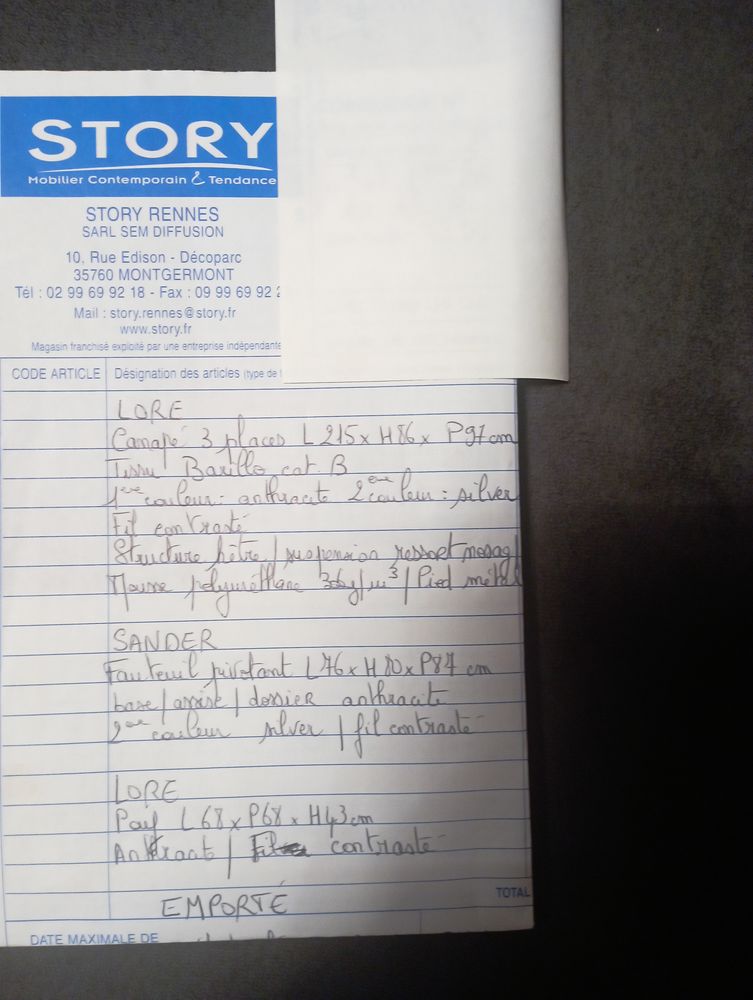 STORY
Mobilier Contemporain & Tendance
STORY RENNES
SARL SEM DIFFUSION
10, Rue Edison - Décoparc
35760 MONTGERMONT
Tél : 02 99 69 92 18 - Fax : 09 99 69 92
Mail : story.rennes@story.fr
www.story.fr
Magasin franchisé exploité par une entreprise indépendante
CODE ARTICLE Désignation des articles (type de
LORE
Canapé 3 places L 215 x H 86 x P 97 cm
Tissu Barillo cat. B
1ère couleur : anthracite 2ème couleur : silver
Fil contrasté
Structure hêtre / suspension ressort nosag
Mousse polyuréthane /m³ / Pied métal
SANDER
Fauteuil pivotant L 76 x H 80 x P 87 cm
base / assise / dossier anthracite
2ème couleur silver / fil contrasté
LORE
Pouf L 68 x P 68 x H 43 cm
Anthracite / Fil contrasté
EMPORTÉ
TOTAL
DATE MAXIMALE DE